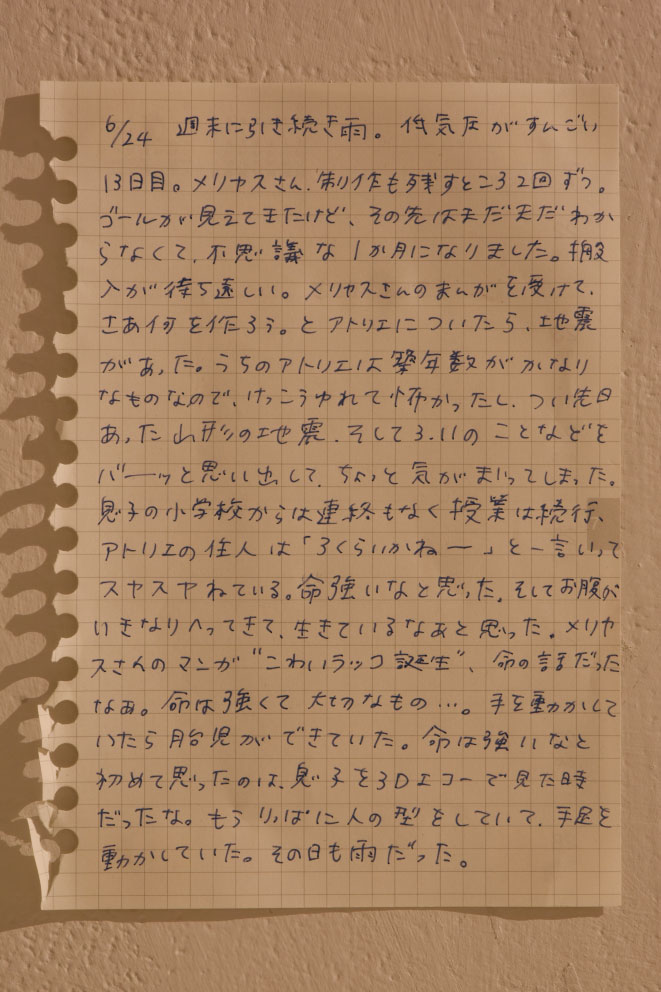 6/24 週末に引き続き雨。低気圧がすんごい
13日目。メリヤスさん、制作も残すところ2回ずつ。
ゴールが見えてきたけど、その先はまだまだわか
らなくて、不思議な1か月になりました。搬
入が待ち遠しい。メリヤスさんのまんがを受けて、
さあ何を作ろう。とアトリエについたら、地震
があった。うちのアトリエは築年数がかなり
なものなので、けっこうゆれて怖かったし、つい先日
あった山形の地震、そして3.11のことなどを
バーッと思い出して、ちょっと気がまいってしまった。
息子の小学校からは連絡もなく授業は続行、
アトリエの住人は「3くらいかねー」と一言いって
スヤスヤねている。命強いなと思った。そしてお腹が
いきなりへってきて、生きているなあと思った。メリヤ
スさんのマンガ“こわいラッコ誕生”、命の話だった
なぁ。命は強くて大切なもの…。手を動かして
いたら胎児ができていた。命は強いなと
初めて思ったのは、息子を3Dエコーで見た時
だったな。もうりっぱに人の型をしていて、手足を
動かしていた。その日も雨だった。